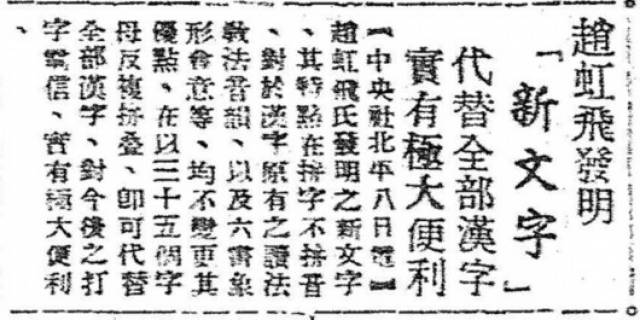 趙虹飛發明
「新文字」
代替全部漢字
實有極大便利
【中央社北平八日電】
趙虹飛氏發明之新文字
、其特點在拼字不拼音
、對於漢字原有之讀法
教法音韻、以及六書象
形會意等、均不變更其
優點、在以三十五個字
母反複拼叠、卽可代替
全部漢字、對今後之打
字電信、實有極大便利
、